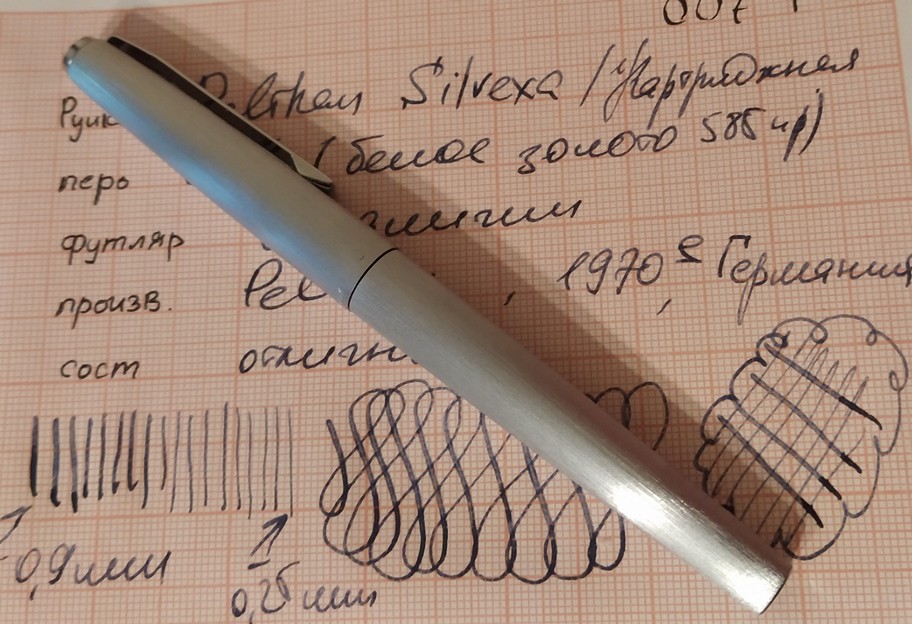 007
Ручк Pelikan Silvexa / Картриджная
перо (белое золото 585 пр)
футляр
произв. Pel , 1970е, Германия
сост отличн
0,9 мм
0,25 мм